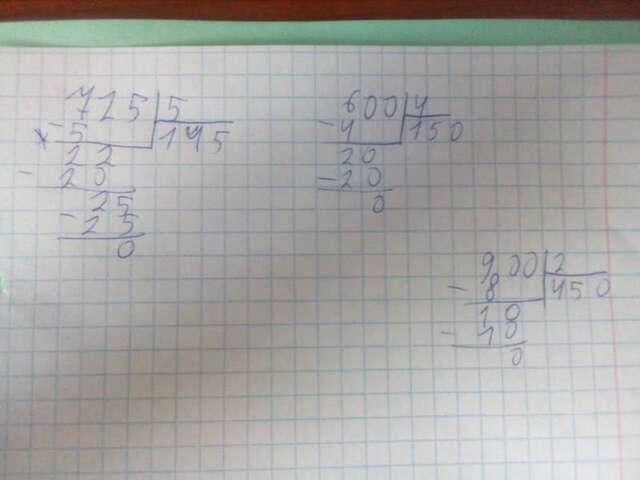 725 5
- 5 145
22
- 20
25
- 25
0
600 4
- 4 150
20
- 20
0
900 2
- 8 450
10
- 10
0